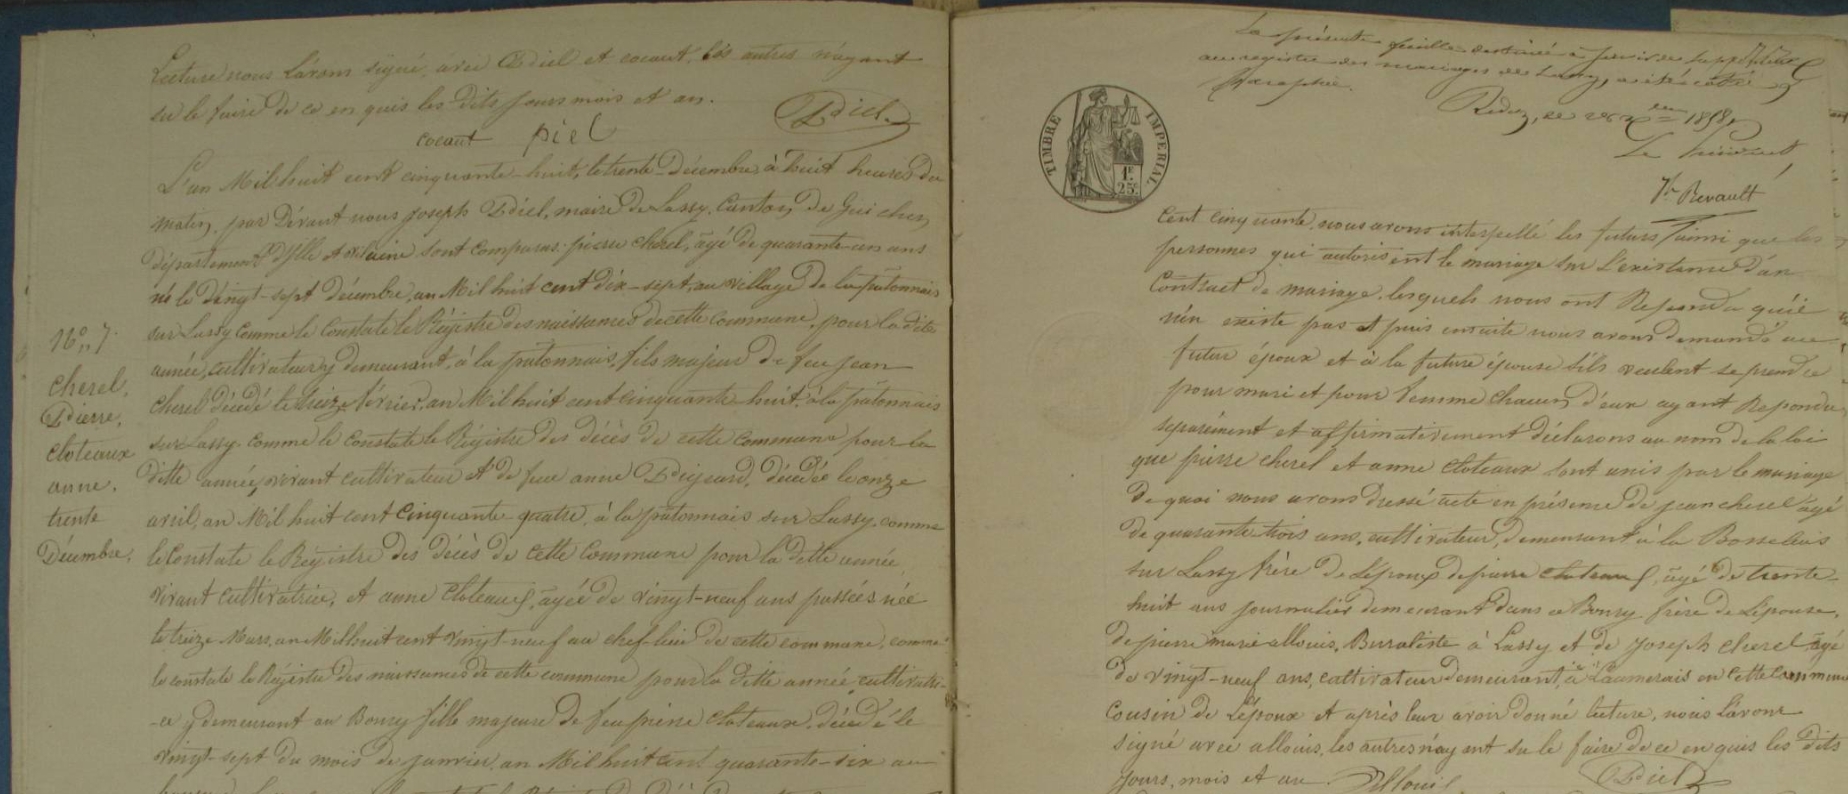 Lecture nous l'avons signé, avec Piel et cocaut, les autres n'ayant
su le faire de ce en quis les dits jours mois et an.
cocaut piel Piel
L'an Mil huit cent cinquante-huit, le trente Décembre, à huit heures du
matin, par Dévant nous joseph Piel, maire de Lassy, Canton de Guichen,
département d'Ille et vilaine sont comparus pierre cherel, âgé de quarante-un ans
né le vingt-sept décembre, an Mil huit cent dix-sept, au village de la patonnais
sur Lassy comme le Constate le Régistre des naissances de cette commune, pour la dite
année, cultivateur y demeurant, à la patonnais, fils majeur de feu jean
cherel décédé le treize février, an Mil huit cent cinquante-huit, à la patonnais
sur Lassy. comme le constate le Régistre des décès de cette commune pour la
ditte année, vivant cultivateur et de feue anne Pigeard, décédée le onze
avril, an Mil huit cent cinquante-quatre, à la patonnais sur Lassy. comme
le Constate le Régistre des décès de cette Commune pour la ditte année,
vivant cultivatrice, et anne cloteaux, âgée de vingt-neuf ans passés née
le treize Mars, an Mil huit cent vingt-neuf au chef-lieu de cette commune, comme
le constate le Régistre des naissances de cette commune pour la ditte année, cultivatri-
-ce y demeurant au Bourg fille majeure de feu pierre cloteaux, décédé le
vingt-sept du mois de janvier, an Mil huit cent quarante-six au
N° 7.
cherel,
Pierre,
cloteaux
anne.
trente
Décembre.
La présente feuille destinée à servir de supplément
au registre des mariages de Lassy, a été coté
paraphée.
Redon, le 1858,
Le Président
Th Revault
TIMBRE IMPERIAL
1F.
25C.
Cent cinquante, nous avons interpellé les futurs ainsi que les
personnes qui autorisent le mariage sur L'existence d'un
Contract de mariage, lesquels nous ont Repondu qu'il
n'en existe pas et puis ensuite nous avons demandé au
futur époux et à la future épouse s'ils veulent se prendre
pour mari et pour femme chacun d'eux ayant Repondu
séparément et affirmativement déclarons au nom de la loi
que pierre cherel et anne cloteaux sont unis par le mariage
De quoi nous avons dressé acte en présence de jean cherel âgé
de quarante-trois ans, cultivateur, demeurant à la
sur Lassy frère de l'époux de pierre cloteaux, âgé de trente-
huit ans journalier demeurant dans ce Bourg frère de l'épouse,
de pierre marie allouis, Buraliste à Lassy et de joseph cherel âgé
de vingt-neuf ans, cultivateur demeurant, à en cette Commune
cousin de l'époux et après leur avoir donné lecture, nous l'avons
signé avec allouis, les autres n'ayant su le faire de ce en quis les dits
jours, mois et an. Allouis Piel